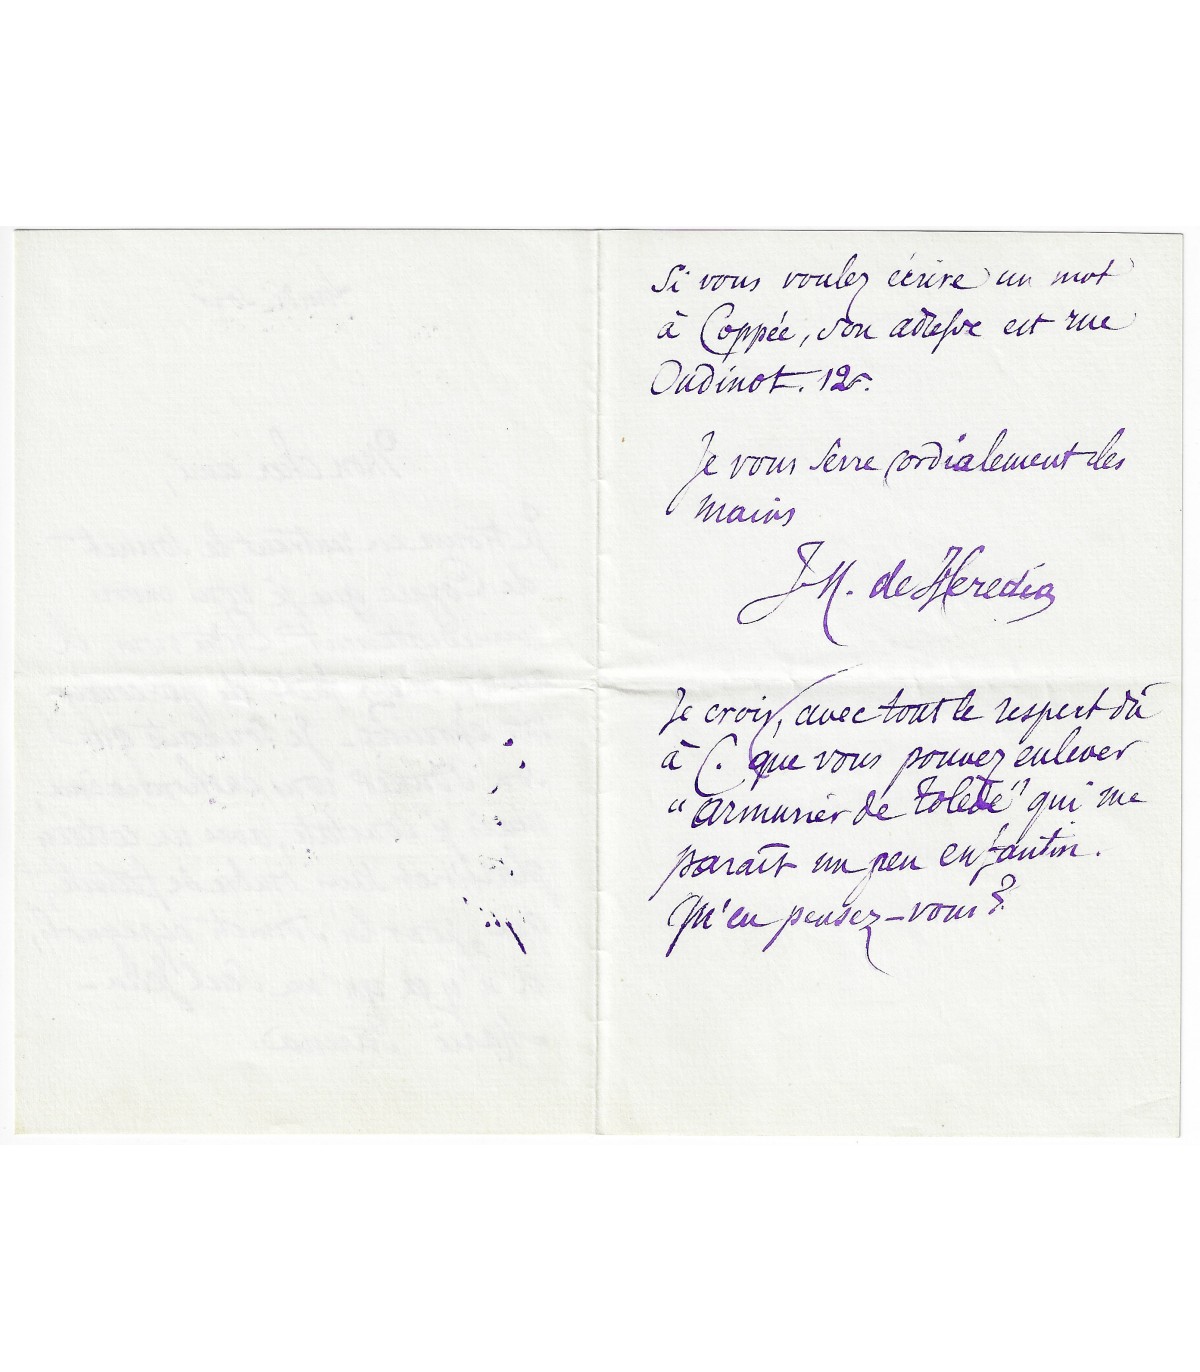 Si vous voulez écrire un mot
à Coppée, son adresse est rue
Oudinot. 12.
Je vous serre cordialement les
mains
JM. de Heredia
Je crois, avec tout le respect dû
à C. que vous pouvez enlever
"armurier de Tolède" qui me
paraît un peu enfantin.
Qu'en pensez-vous?